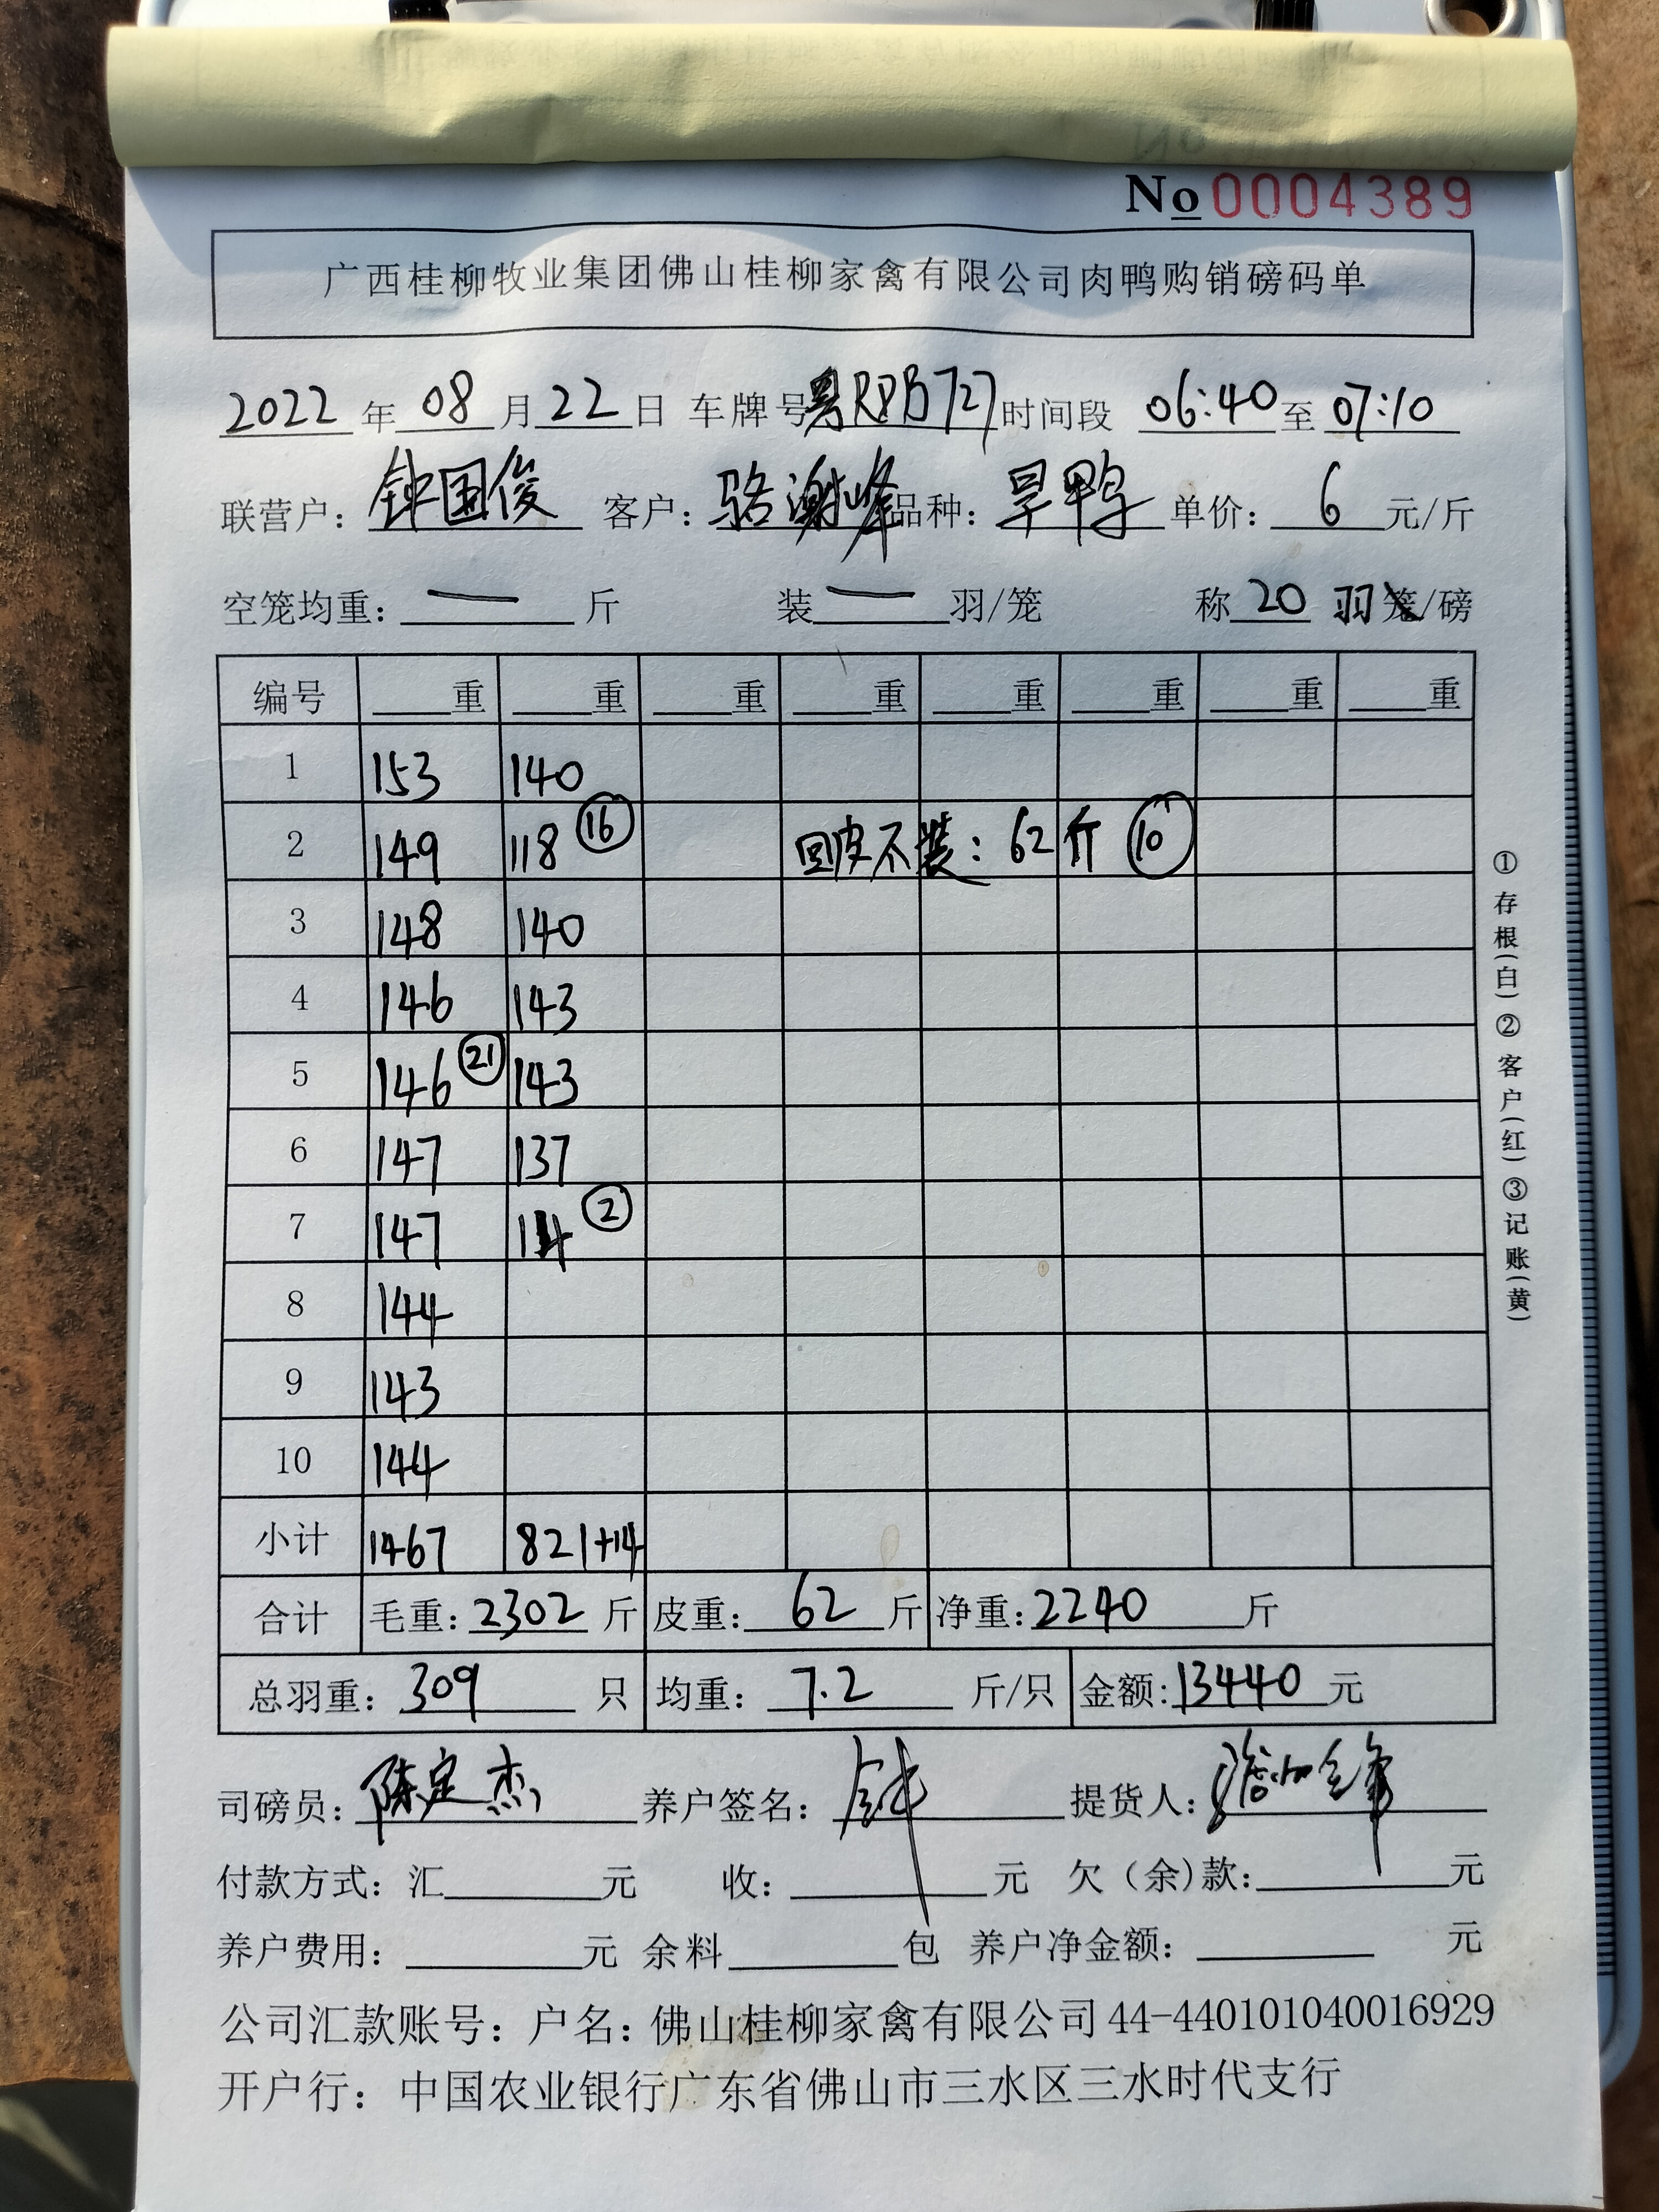 No 0004389
广西桂柳牧业集团佛山桂柳家禽有限公司肉鸭购销磅码单
2022 年 08 月 22 日 车牌号 粤RPB727 时间段 06:40 至 07:10
联营户: 钟国俊 客户: 骆湖峰 品种: 旱鸭 单价: 6 元/斤
空笼均重: — 斤 装 — 羽/笼 称 20 羽 笼/磅
编号 重 重 重 重 重 重 重 重
1 153 140
2 149 118 ⑯ 回皮不装: 62斤 ⑩
3 148 140
4 146 143
5 146 ㉑ 143
6 147 137
7 147 14 ②
8 144
9 143
10 144
小计 1467 821+14
合计 毛重: 2302 斤 皮重: 62 斤 净重: 2240 斤
总羽重: 309 只 均重: 7.2 斤/只 金额: 13440 元
司磅员: 陈定杰 养户签名: 钟 提货人:
付款方式: 汇 元 收: 元 欠（余)款: 元
养户费用: 元 余料 包 养户净金额: 元
公司汇款账号: 户名: 佛山桂柳家禽有限公司 44-440101040016929
开户行: 中国农业银行广东省佛山市三水区三水时代支行
①存根(白)②客户(红)③记账(黄)